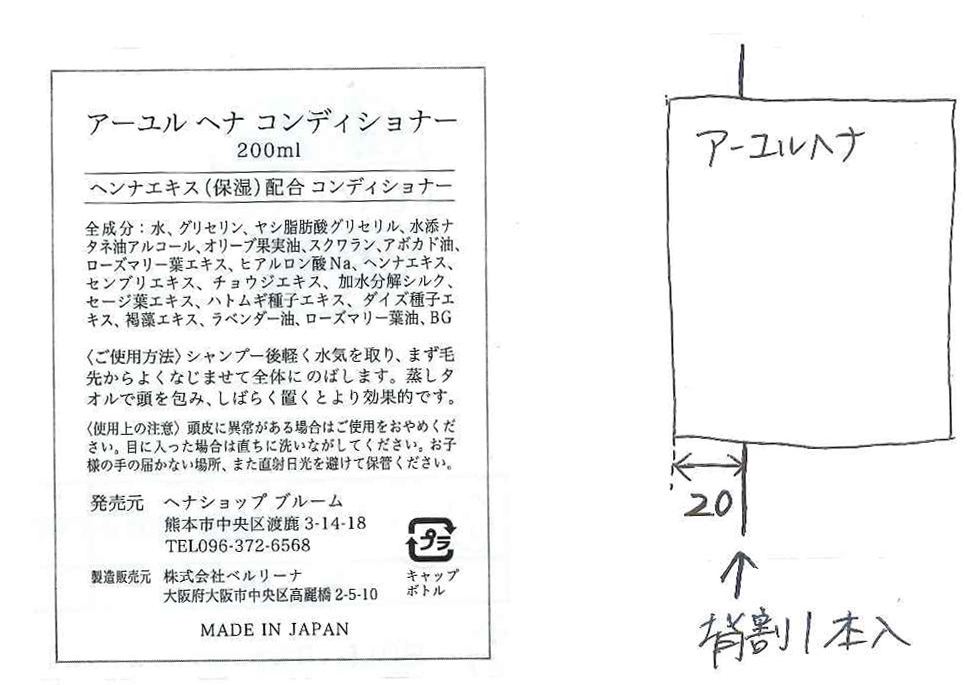 アーユル ヘナ コンディショナー
200ml
ヘンナエキス(保湿)配合 コンディショナー
全成分：水、グリセリン、ヤシ脂肪酸グリセリル、水添ナ
タネ油アルコール、オリーブ果実油、スクワラン、アボカド油、
ローズマリー葉エキス、ヒアルロン酸Na、ヘンナエキス、
センブリエキス、チョウジエキス、加水分解シルク、
セージ葉エキス、ハトムギ種子エキス、ダイズ種子エ
キス、褐藻エキス、ラベンダー油、ローズマリー葉油、BG
〈ご使用方法〉シャンプー後軽く水気を取り、まず毛
先からよくなじませて全体に のばします。蒸しタ
オルで頭を包み、しばらく置くとより効果的です。
〈使用上の注意〉頭皮に異常がある場合はご使用をおやめくだ
さい。目に入った場合は直ちに洗いながしてください。お子
様の手の届かない場所、また直射日光を避けて保管ください。
発売元 ヘナショップ ブルーム
熊本市中央区渡鹿 3-14-18
TEL096-372-6568
プラ
キャップ
ボトル
製造販売元 株式会社ベルリーナ
大阪府大阪市中央区高麗橋 2-5-10
MADE IN JAPAN
アーユルヘナ
20
背割1本入